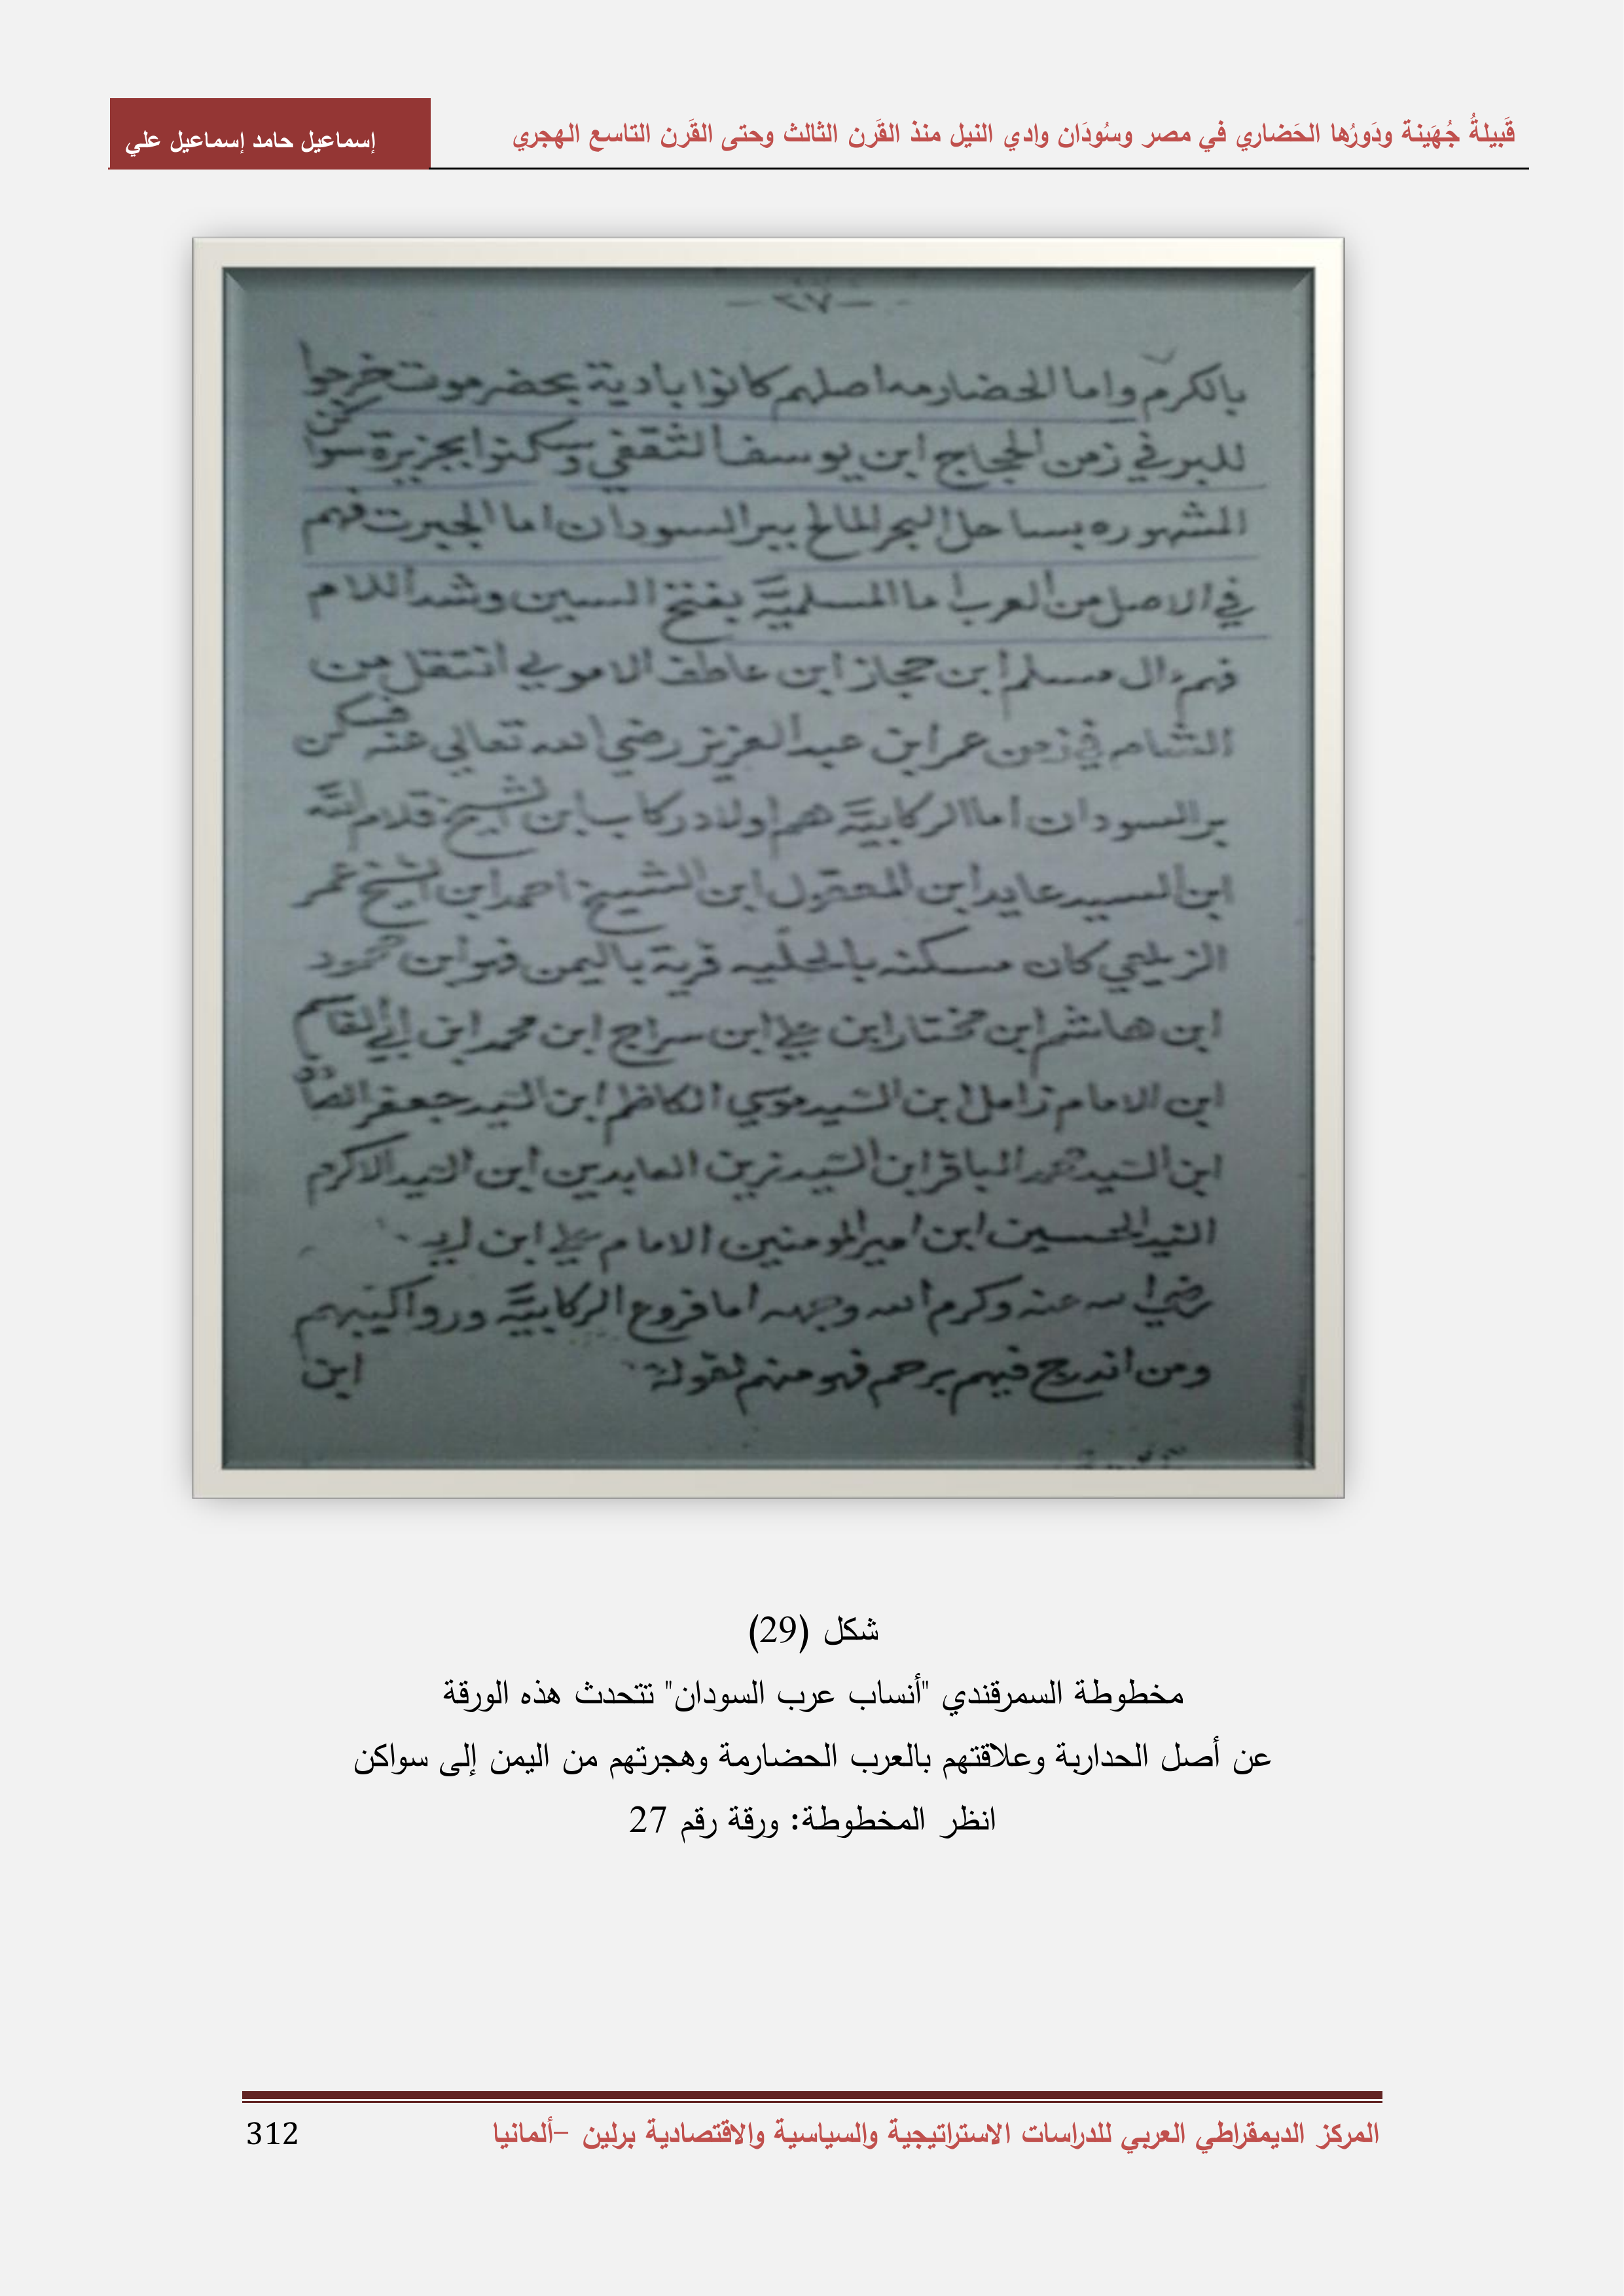 قَبيلةُ جُهَينة ودَورُها الحَضاري في مصر وسُودَان وادي النيل منذ القَرن الثالث وحتى القَرن التاسع الهجري
إسماعيل حامد إسماعيل علي
- ٢٧ -
بالكرم واما الحضارمه اصلهم كانوا بادية بحضرموت خرجوا
للبر في زمن الحجاج ابن يوسف الثقفي وسكنوا بجزيرة سواكن
المشهوره بساحل البحر المالح ببر السودان اما الجبرت فهم
في الاصل من العرب اما المسلميَّه بفتح السين وشد اللام
فهم ال مسلم ابن حجاز ابن عاطف الاموي انتقل من
الشام في زمن عمر ابن عبد العزيز رضي الله تعالى عنه فسكن
بر السودان اما الركابيَّه هم اولاد ركاب ابن الشيخ غلام الله
ابن السيد عايد ابن المعقول ابن الشيخ احمد ابن الشيخ عمر
الزيلعي كان مسكنه بالحليه قرية باليمن فهو ابن محمود
ابن هاشم ابن مختار ابن علي ابن سراج ابن محمد ابن ابي القاسم
ابن الامام زامل بن السيد موسي الكاظم ابن السيد جعفر الصادق
ابن السيد محمد الباقر ابن السيد زين العابدين ابن السيد الاكرم
السيد الحسين ابن امير المومنين الامام علي ابن
رضي الله عنه وكرم الله وجهه اما فروع الركابيَّه ورواكيبهم
ومن اندرج فيهم برحم فهو منهم لقوله
ابن
شكل (29)
مخطوطة السمرقندي "أنساب عرب السودان" تتحدث هذه الورقة
عن أصل الحداربة وعلاقتهم بالعرب الحضارمة وهجرتهم من اليمن إلى سواكن
انظر المخطوطة: ورقة رقم 27
المركز الديمقراطي العربي للدراسات الاستراتيجية والسياسية والاقتصادية برلين –ألمانيا
312